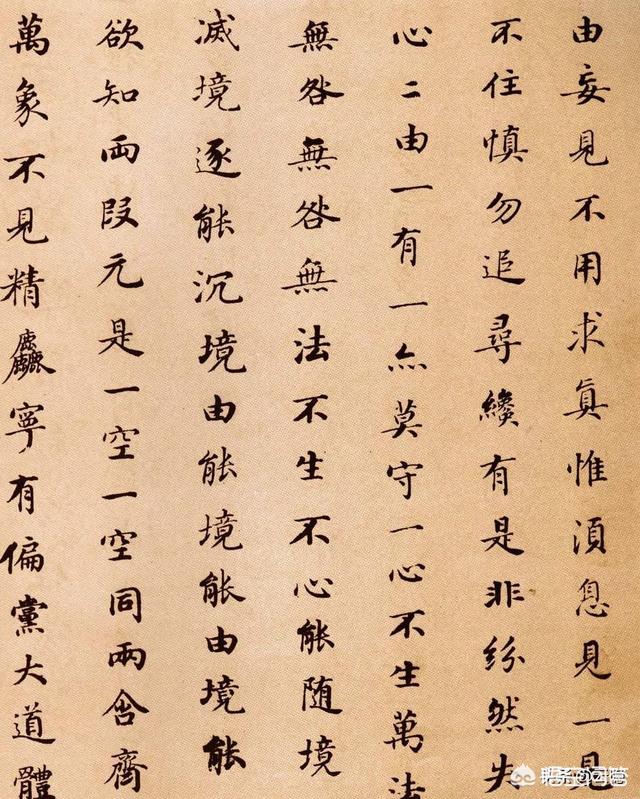 由妄見不用求眞惟須息見一見
不住慎勿追尋纔有是非紛然失
心二由一有一亦莫守一心不生萬法
無咎無咎無法不生不心能随境
滅境逐能沉境由能境能由境能
欲知両段元是一空一空同兩含齊
萬象不見精麤寧有偏黨大道體